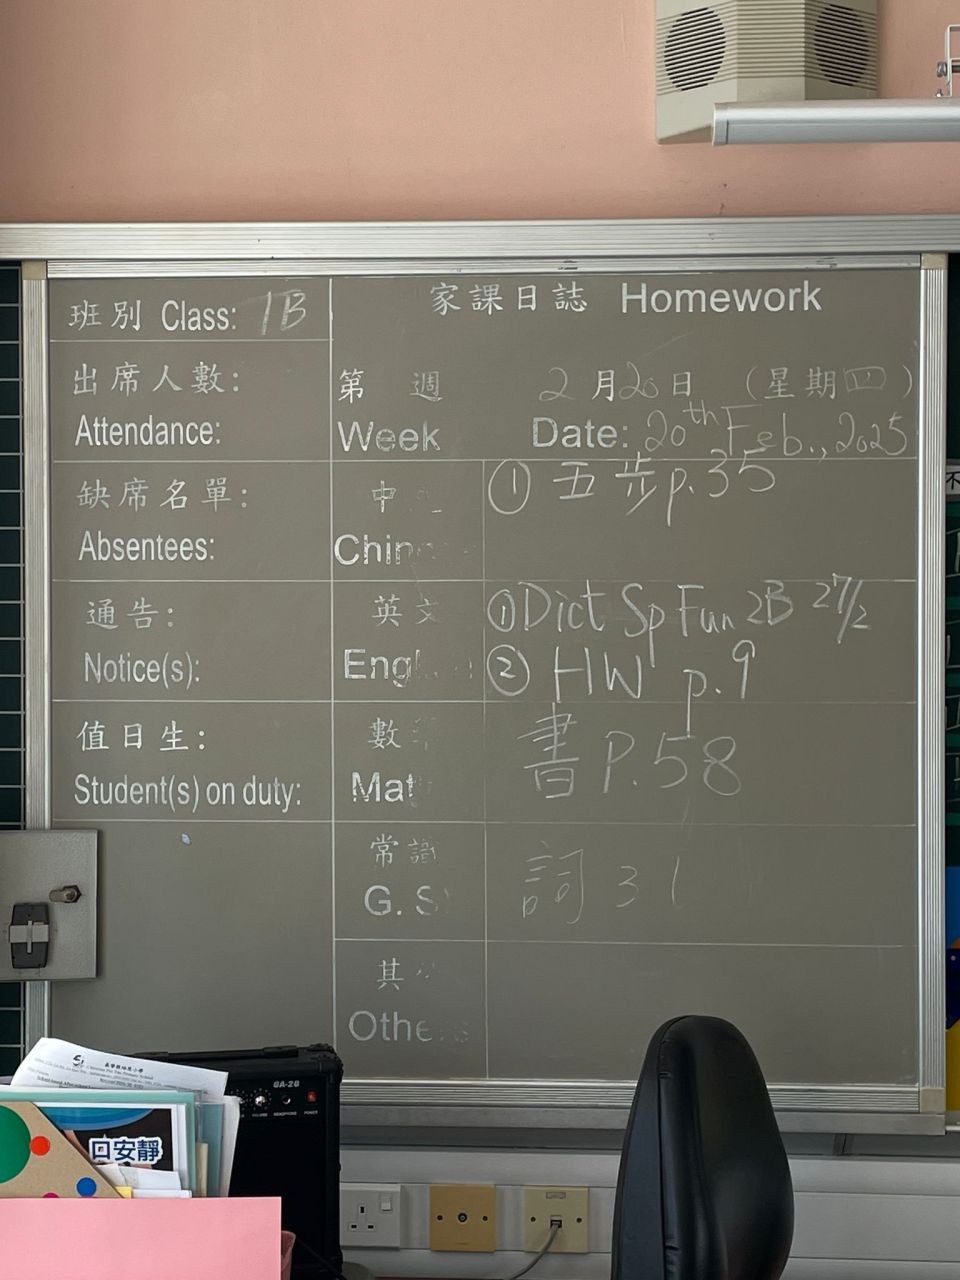 班別 Class: 1B
家課日誌 Homework
出席人數:
Attendance:
第 週 2月20日 (星期四)
Week Date: 20th Feb., 2025
缺席名單:
Absentees:
中
Chin
① 五步p.35
通告:
Notice(s):
英文
Eng
① Dict Sp Fun 2B 27/2
② HW p.9
值日生:
Student(s) on duty:
數
Mat
書 P.58
常識
G. S
詞 31
其
Othe s
GA-20
VOLUME HEADPHONE POWER
口安靜